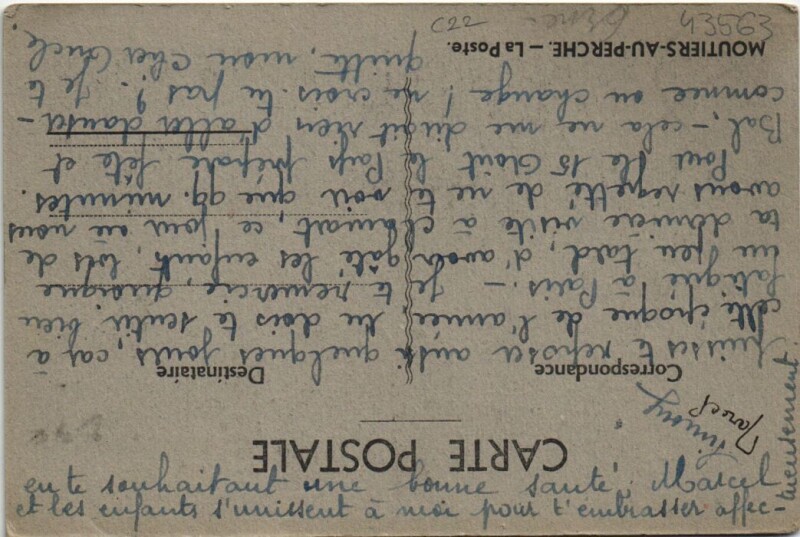 CARTE POSTALE
Correspondance
Destinataire
puisses te reposer aussi quelques jours, car à
cette époque de l'année, tu dois te sentir bien
fatigué à Paris. — Je te remercie, quoique
un peu tard, d'avoir gâté les enfants, lors de
ta dernière visite à Clamart, ce jour où nous
avons regretté de ne te voir que qq. minutes.
Pour le 15 Août le Pays prépare fête et
Bal, — cela ne me disait rien d'aller danser —
comme on change ! ne crois-tu pas ? Je te
quitte, mon Cher Oncle
MOUTIERS-AU-PERCHE. — La Poste.
en te souhaitant une bonne santé, Marcel
et les enfants s'unissent à moi pour t'embrasser affec-
tueusement.
Marcel
C22
43563
Orne